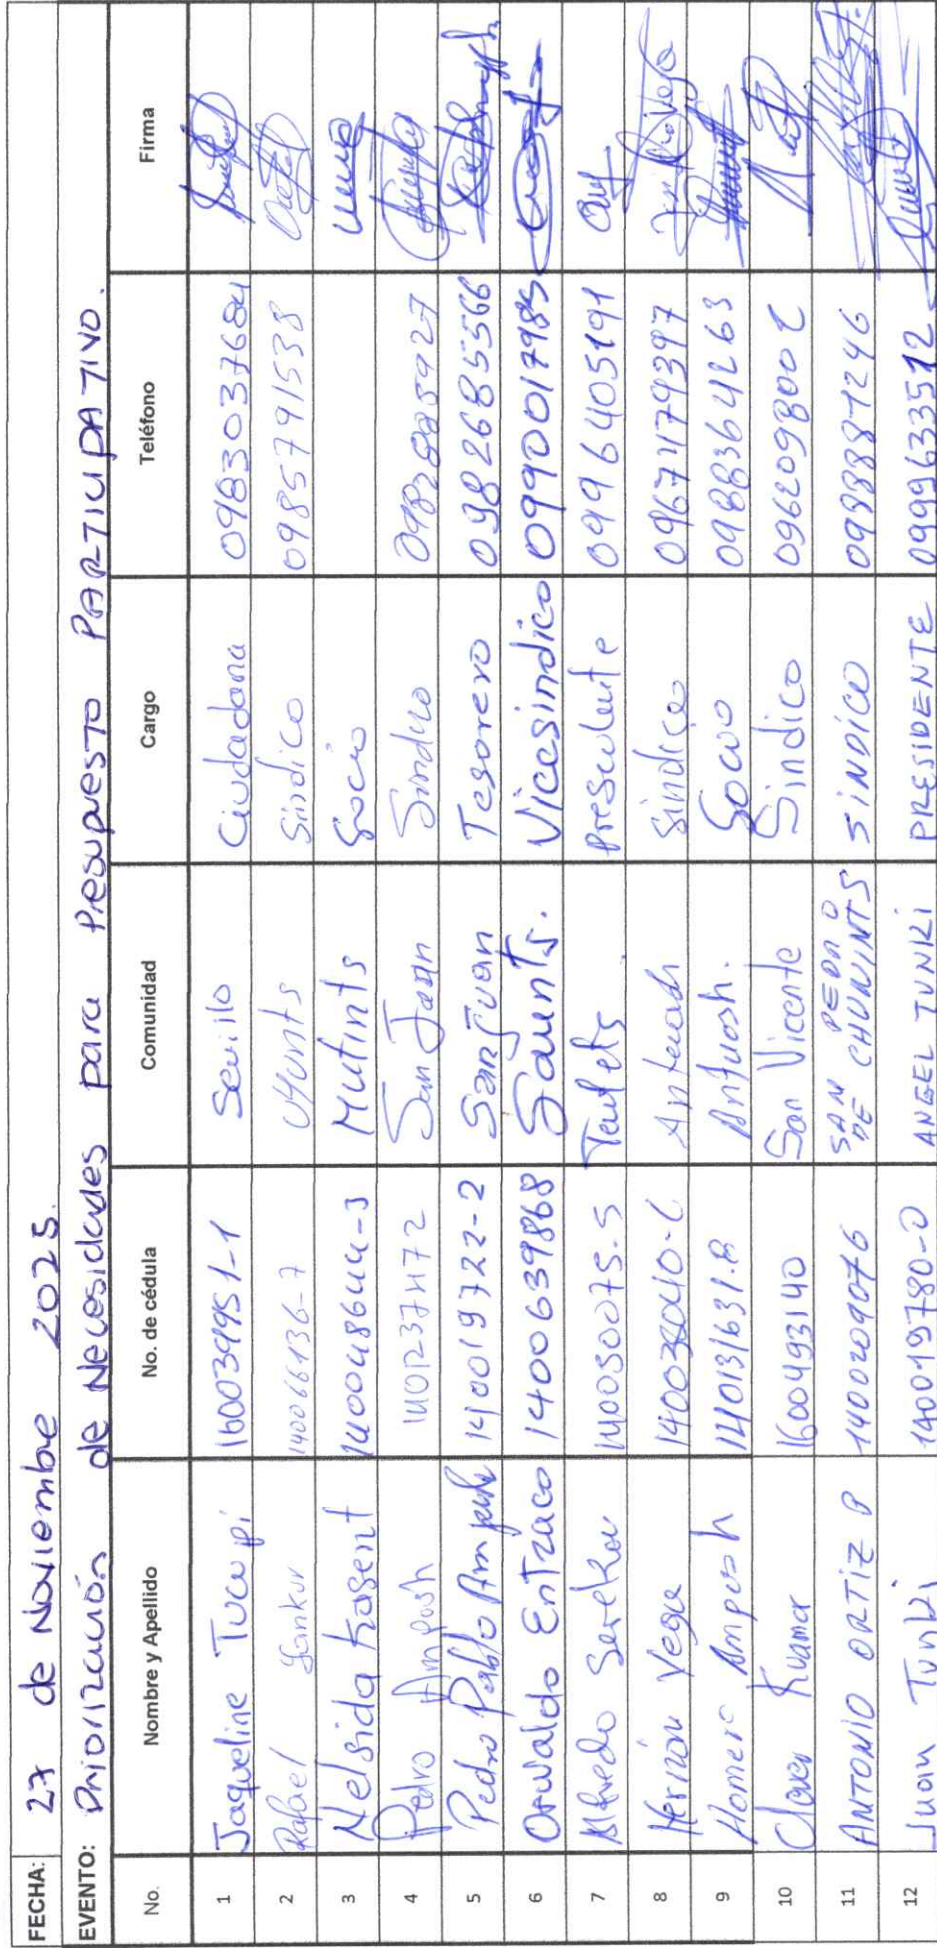 FECHA: 27 de Noviembre 2025.
EVENTO: Priorización de Necesidades para Presupuesto PARTICIPATIVO.
No. Nombre y Apellido No. de cédula Comunidad Cargo Teléfono Firma
1 Jaqueline Tucupi 160034951-1 Sevilo Ciudadana 0983037684
2 Rafael Yankur 140066136-7 Uyunts Síndico 0985791538
3 Nelsida Kasent 140048644-3 Mutints Socio
4 Pedro Ampush 1401237472 San Juan Sindico 0982885927
5 Pedro Pablo 140019722-2 San Juan Tesorero 0982685566
6 Oswaldo Entzaco 1400639868 Saunts. Vicesindico 0990017985
7 Alfredo Serekau 140050075-5 Presidente 0996405191
8 Hernán Vega Síndico 0967179397
9 Homero Ampush 140131631-8 Antuash. Socio 0988364263
10 Kuamar 1600493140 San Vicente Sindico
11 ANTONIO ORTIZ B 1400209076 SAN PEDRO DE CHUNINTS SINDICO 0998887246
12 Juan Tunki 140019780-0 ANGEL TUNKI PRESIDENTE 0999633512